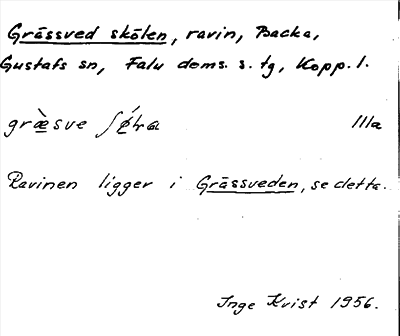 Grässved skölen, ravin, Backa,
Gustafs sn, Falu doms. s. tg, Kopp. l.
græ̀sve IIIa
Ravinen ligger i Grässveden, se detta.
Inge Kvist 1956.